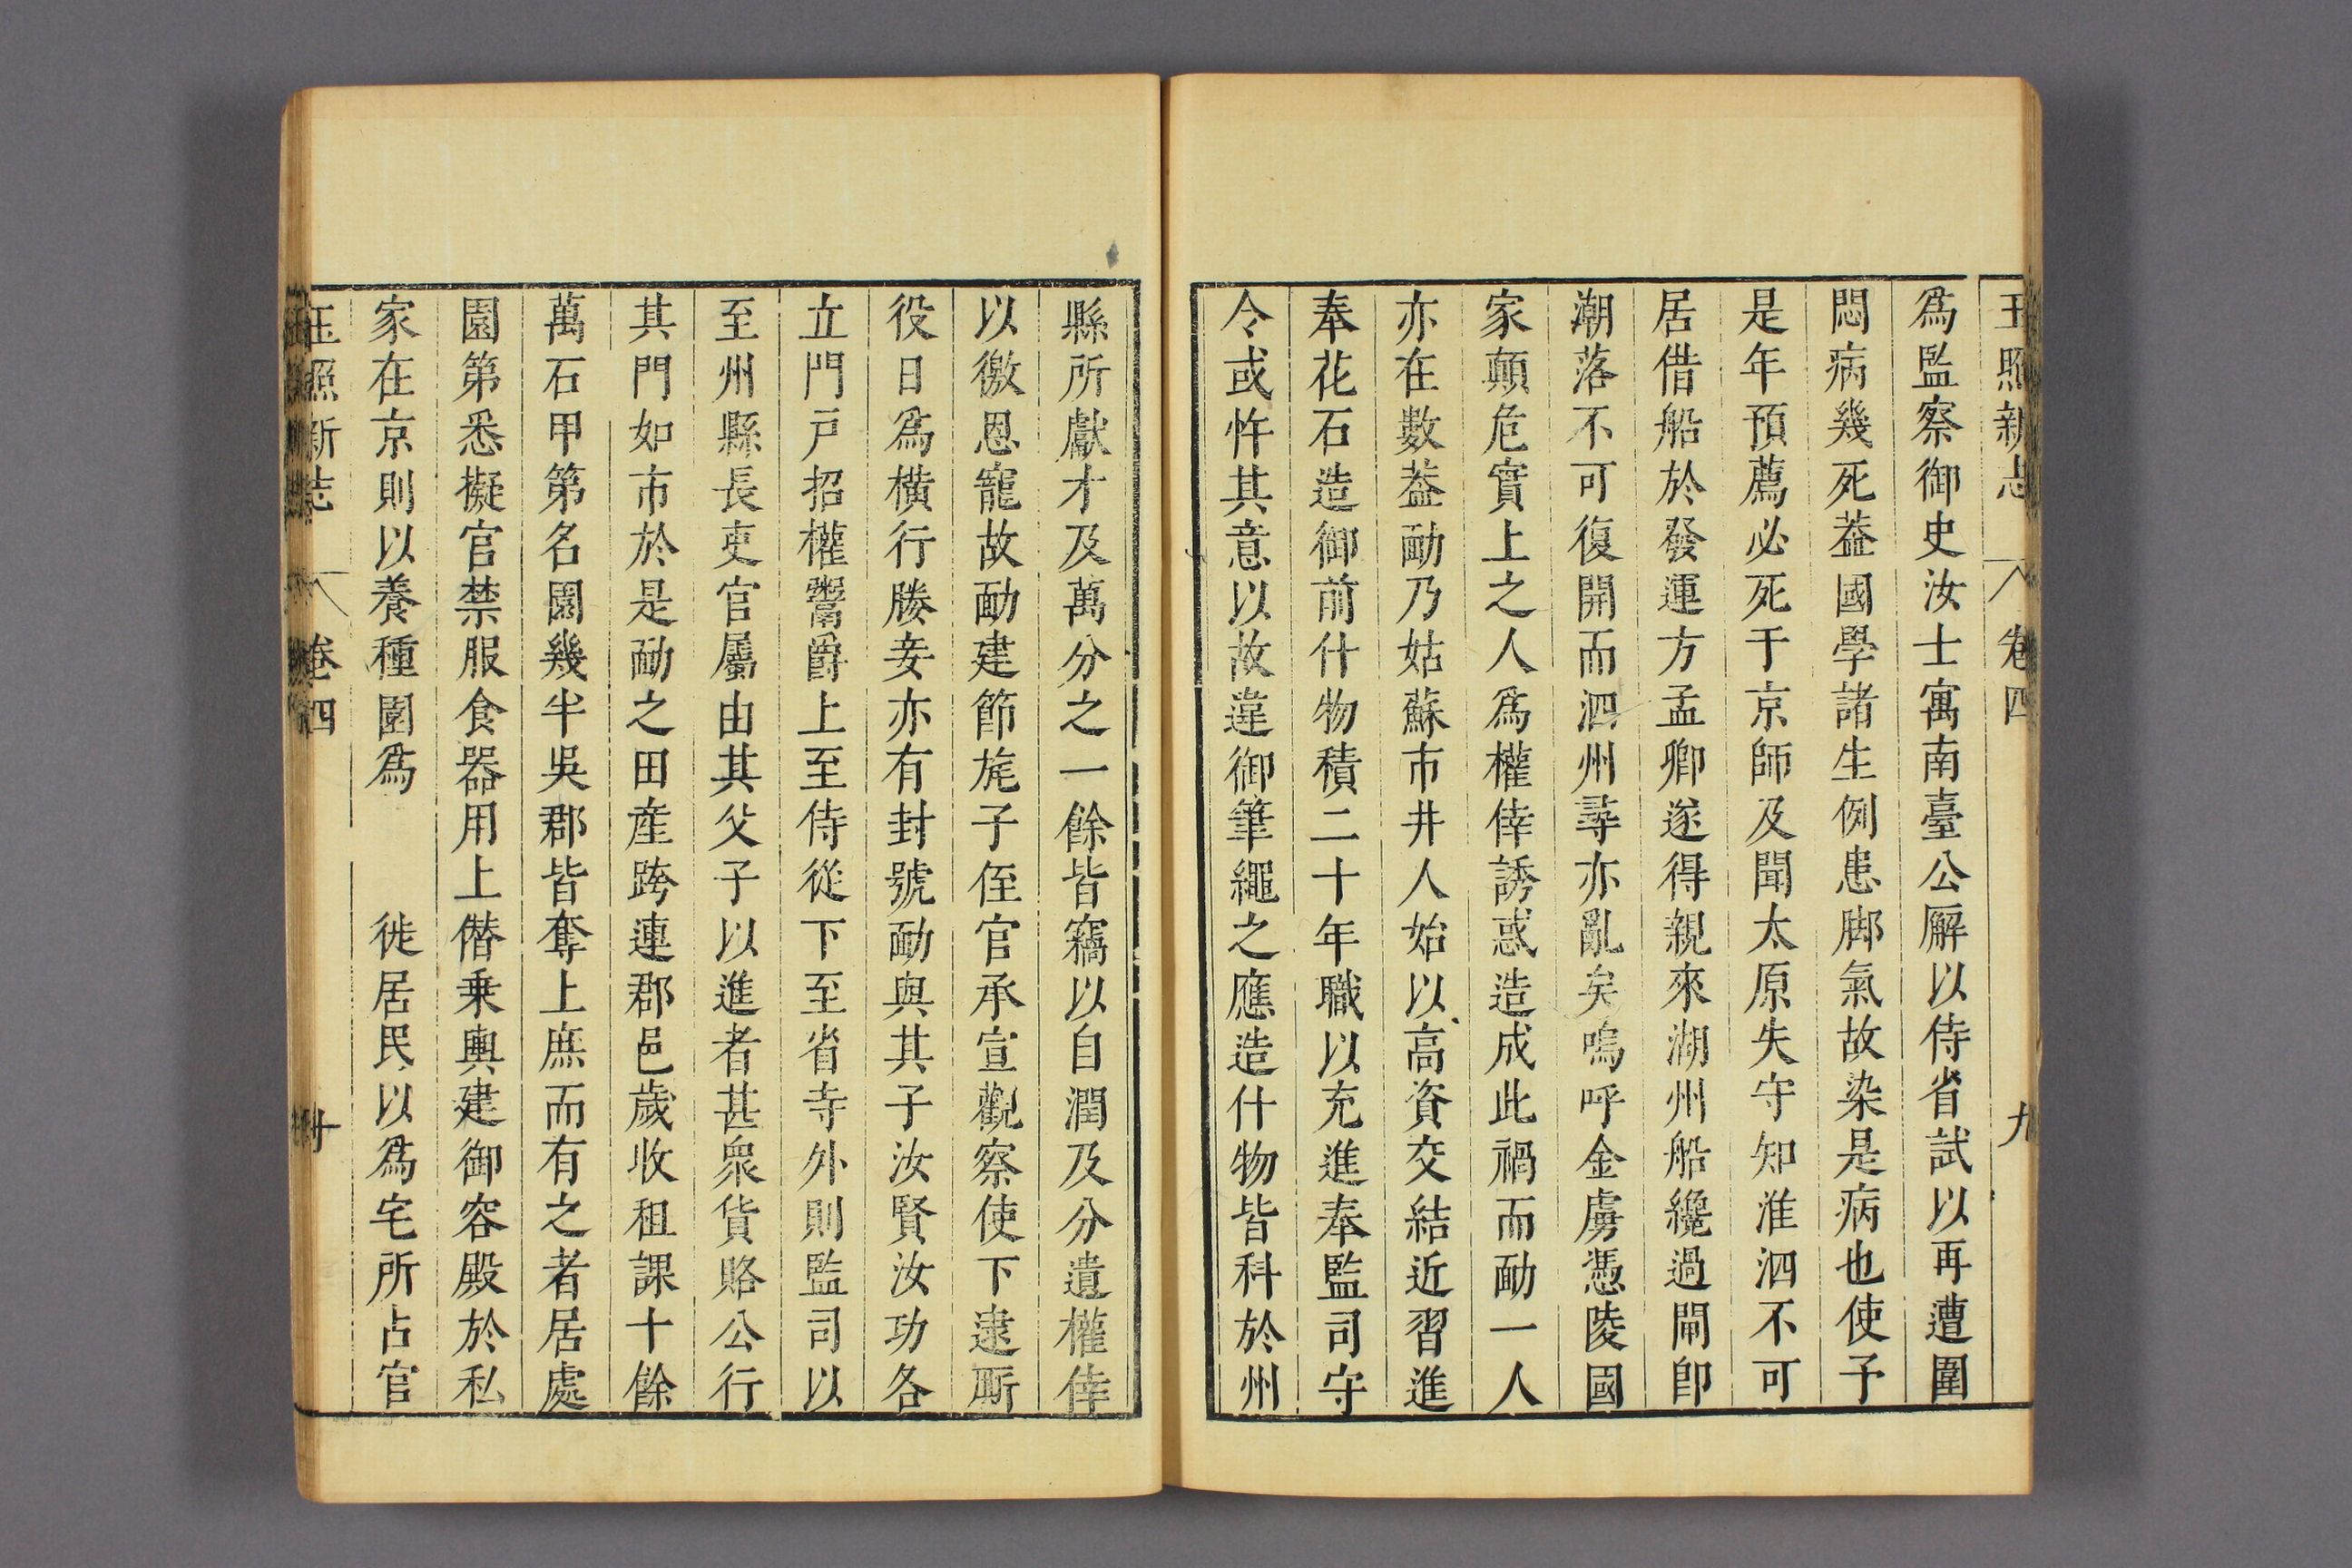 玉照新志 卷四 九
爲監察御史汝士寓南臺公廨以侍省試以再遭圍
悶病幾死葢國學諸生例患脚氣故染是病也使予
是年預薦必死于京師及聞太原失守知淮泗不可
居借船於發運方孟卿遂得親來湖州船纔過閘卽
潮落不可復開而泗州尋亦亂矣嗚呼金虜憑陵國
家顛危實上之人爲權倖誘惑造成此禍而勔一人
亦在數葢勔乃姑蘇市井人始以高資交結近習進
奉花石造御前什物積二十年職以充進奉監司守
令或忤其意以故違御筆繩之應造什物皆科於州
縣所獻才及萬分之一餘皆竊以自潤及分遺權倖
以徼恩寵故勔建節旄子侄官承宣觀察使下逮厮
役日爲橫行媵妾亦有封號勔與其子汝賢汝功各
立門戸招權鬻爵上至侍從下至省寺外則監司以
至州縣長吏官屬由其父子以進者甚衆貨賂公行
其門如市於是勔之田産跨連郡邑歲收租課十餘
萬石甲第名園幾半吳郡皆奪士庶而有之者居處
園第悉擬官禁服食器用上僭乗輿建御容殿於私
家在京則以養種園爲 徙居民以爲宅所占官
玉照新志 卷四 十